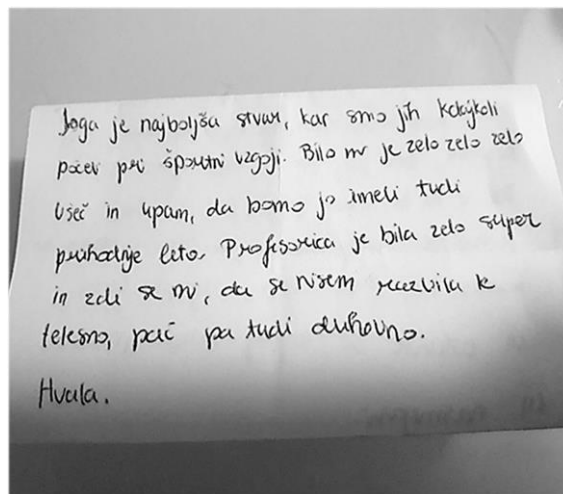 Joga je najboljša stvar, kar smo jih kdajkoli
počeli pri športni vzgoji. Bilo mi je zelo zelo zelo
všeč in upam, da bomo jo imeli tudi
prihodnje leto. Profesorica je bila zelo super
in zdi se mi, da se nisem razvila le
telesno, pač pa tudi duhovno.
Hvala.